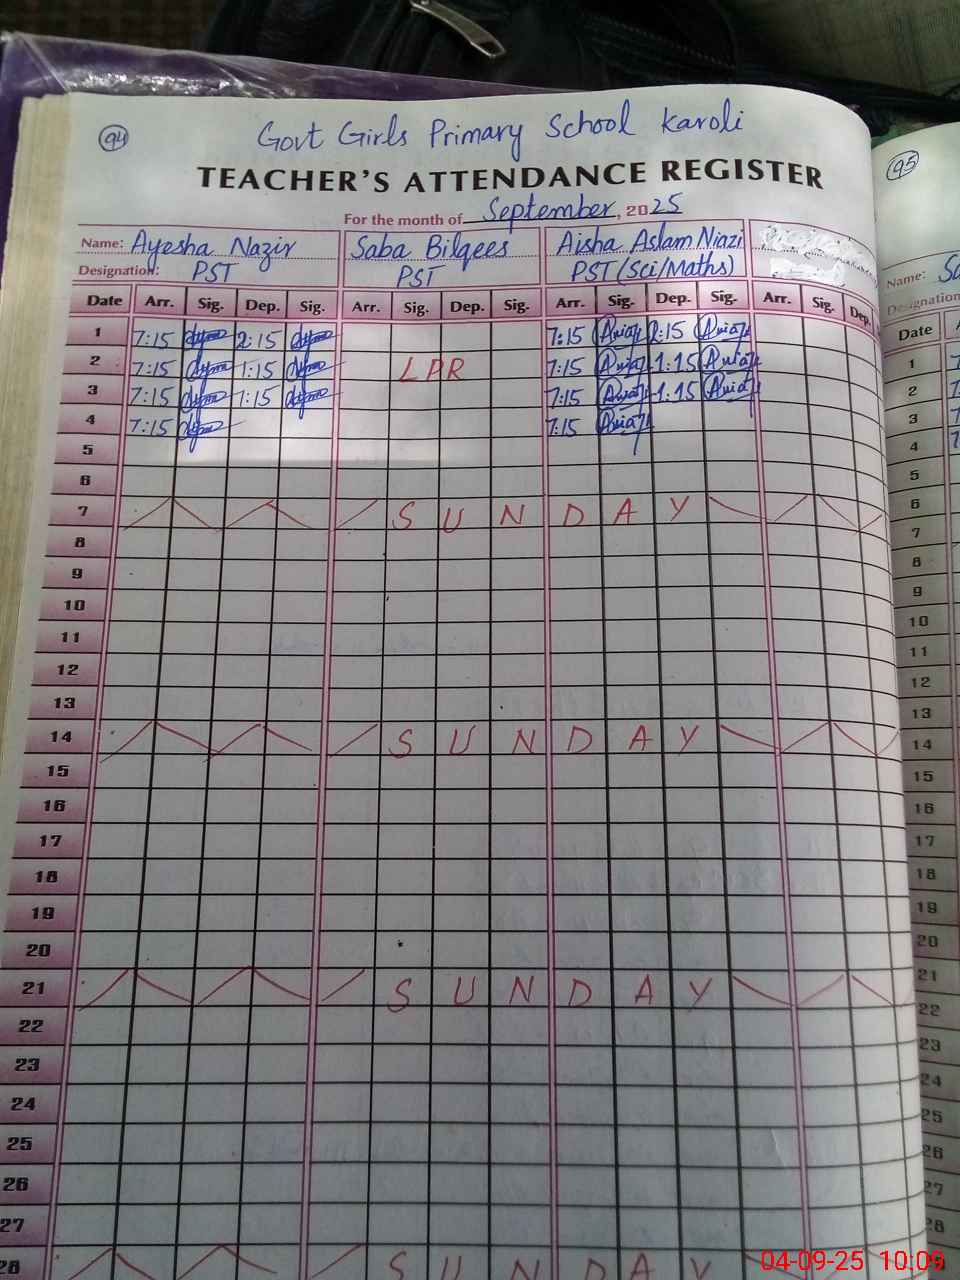 94
Govt Girls Primary School Karoli
95
TEACHER'S ATTENDANCE REGISTER
For the month of September, 2025
Name: Ayesha Nazir Saba Bilqees Aisha Aslam Niazi
Designation: PST PST PST (Sci/Maths)
Name:
Designation
Date Arr. Sig. Dep. Sig. Arr. Sig. Dep. Sig. Arr. Sig. Dep. Sig. Arr. Sig. Dep. Date
1 7:15 2:15 7:15 2:15 1
2 7:15 1:15 LPR 7:15 1:15 2
3 7:15 1:15 7:15 1:15 3
4 7:15 7:15 4
5 5
6 6
7 SUNDAY 7
8 8
9 9
10 10
11 11
12 12
13 13
14 SUNDAY 14
15 15
16 16
17 17
18 18
19 19
20 20
21 SUNDAY 21
22 22
23 23
24 24
25 25
26 26
27 27
28 SUNDAY 28
04-09-25 10:09